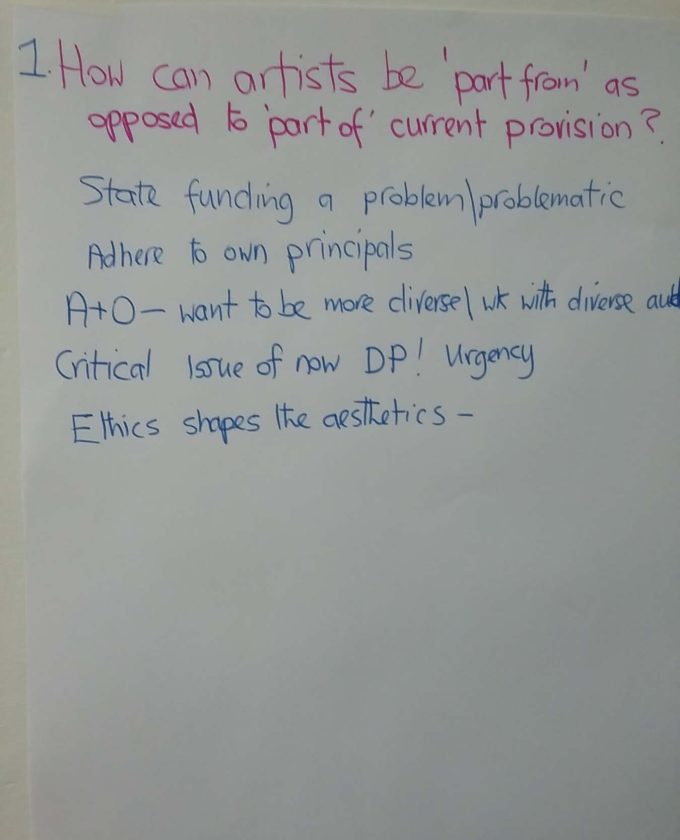 1. How can artists be 'part from' as
opposed to 'part of' current provision?
State funding a problem\problematic
Adhere to own principals
A+O - want to be more diverse\ wk with diverse aud
Critical Issue of now DP! Urgency
Ethics shapes the aesthetics -